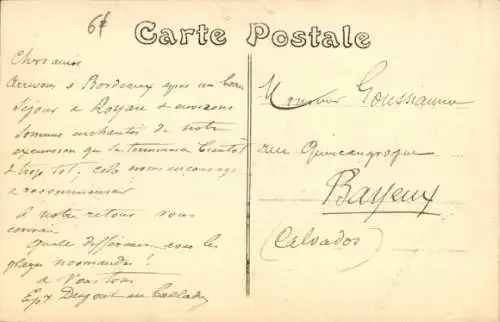 6f
Carte Postale
Chers amis
Arrivons à Bordeaux après un beau
séjour à Royan & environs
Sommes enchantés de notre
excursion qui se terminera bientôt
& trop tôt, cela nous encourage
à recommencer
A notre retour vous
Quelle différence avec les
plages normandes !
à Vous tous
Monsieur
rue Quincangrogne
Bayeux
(Calvados)